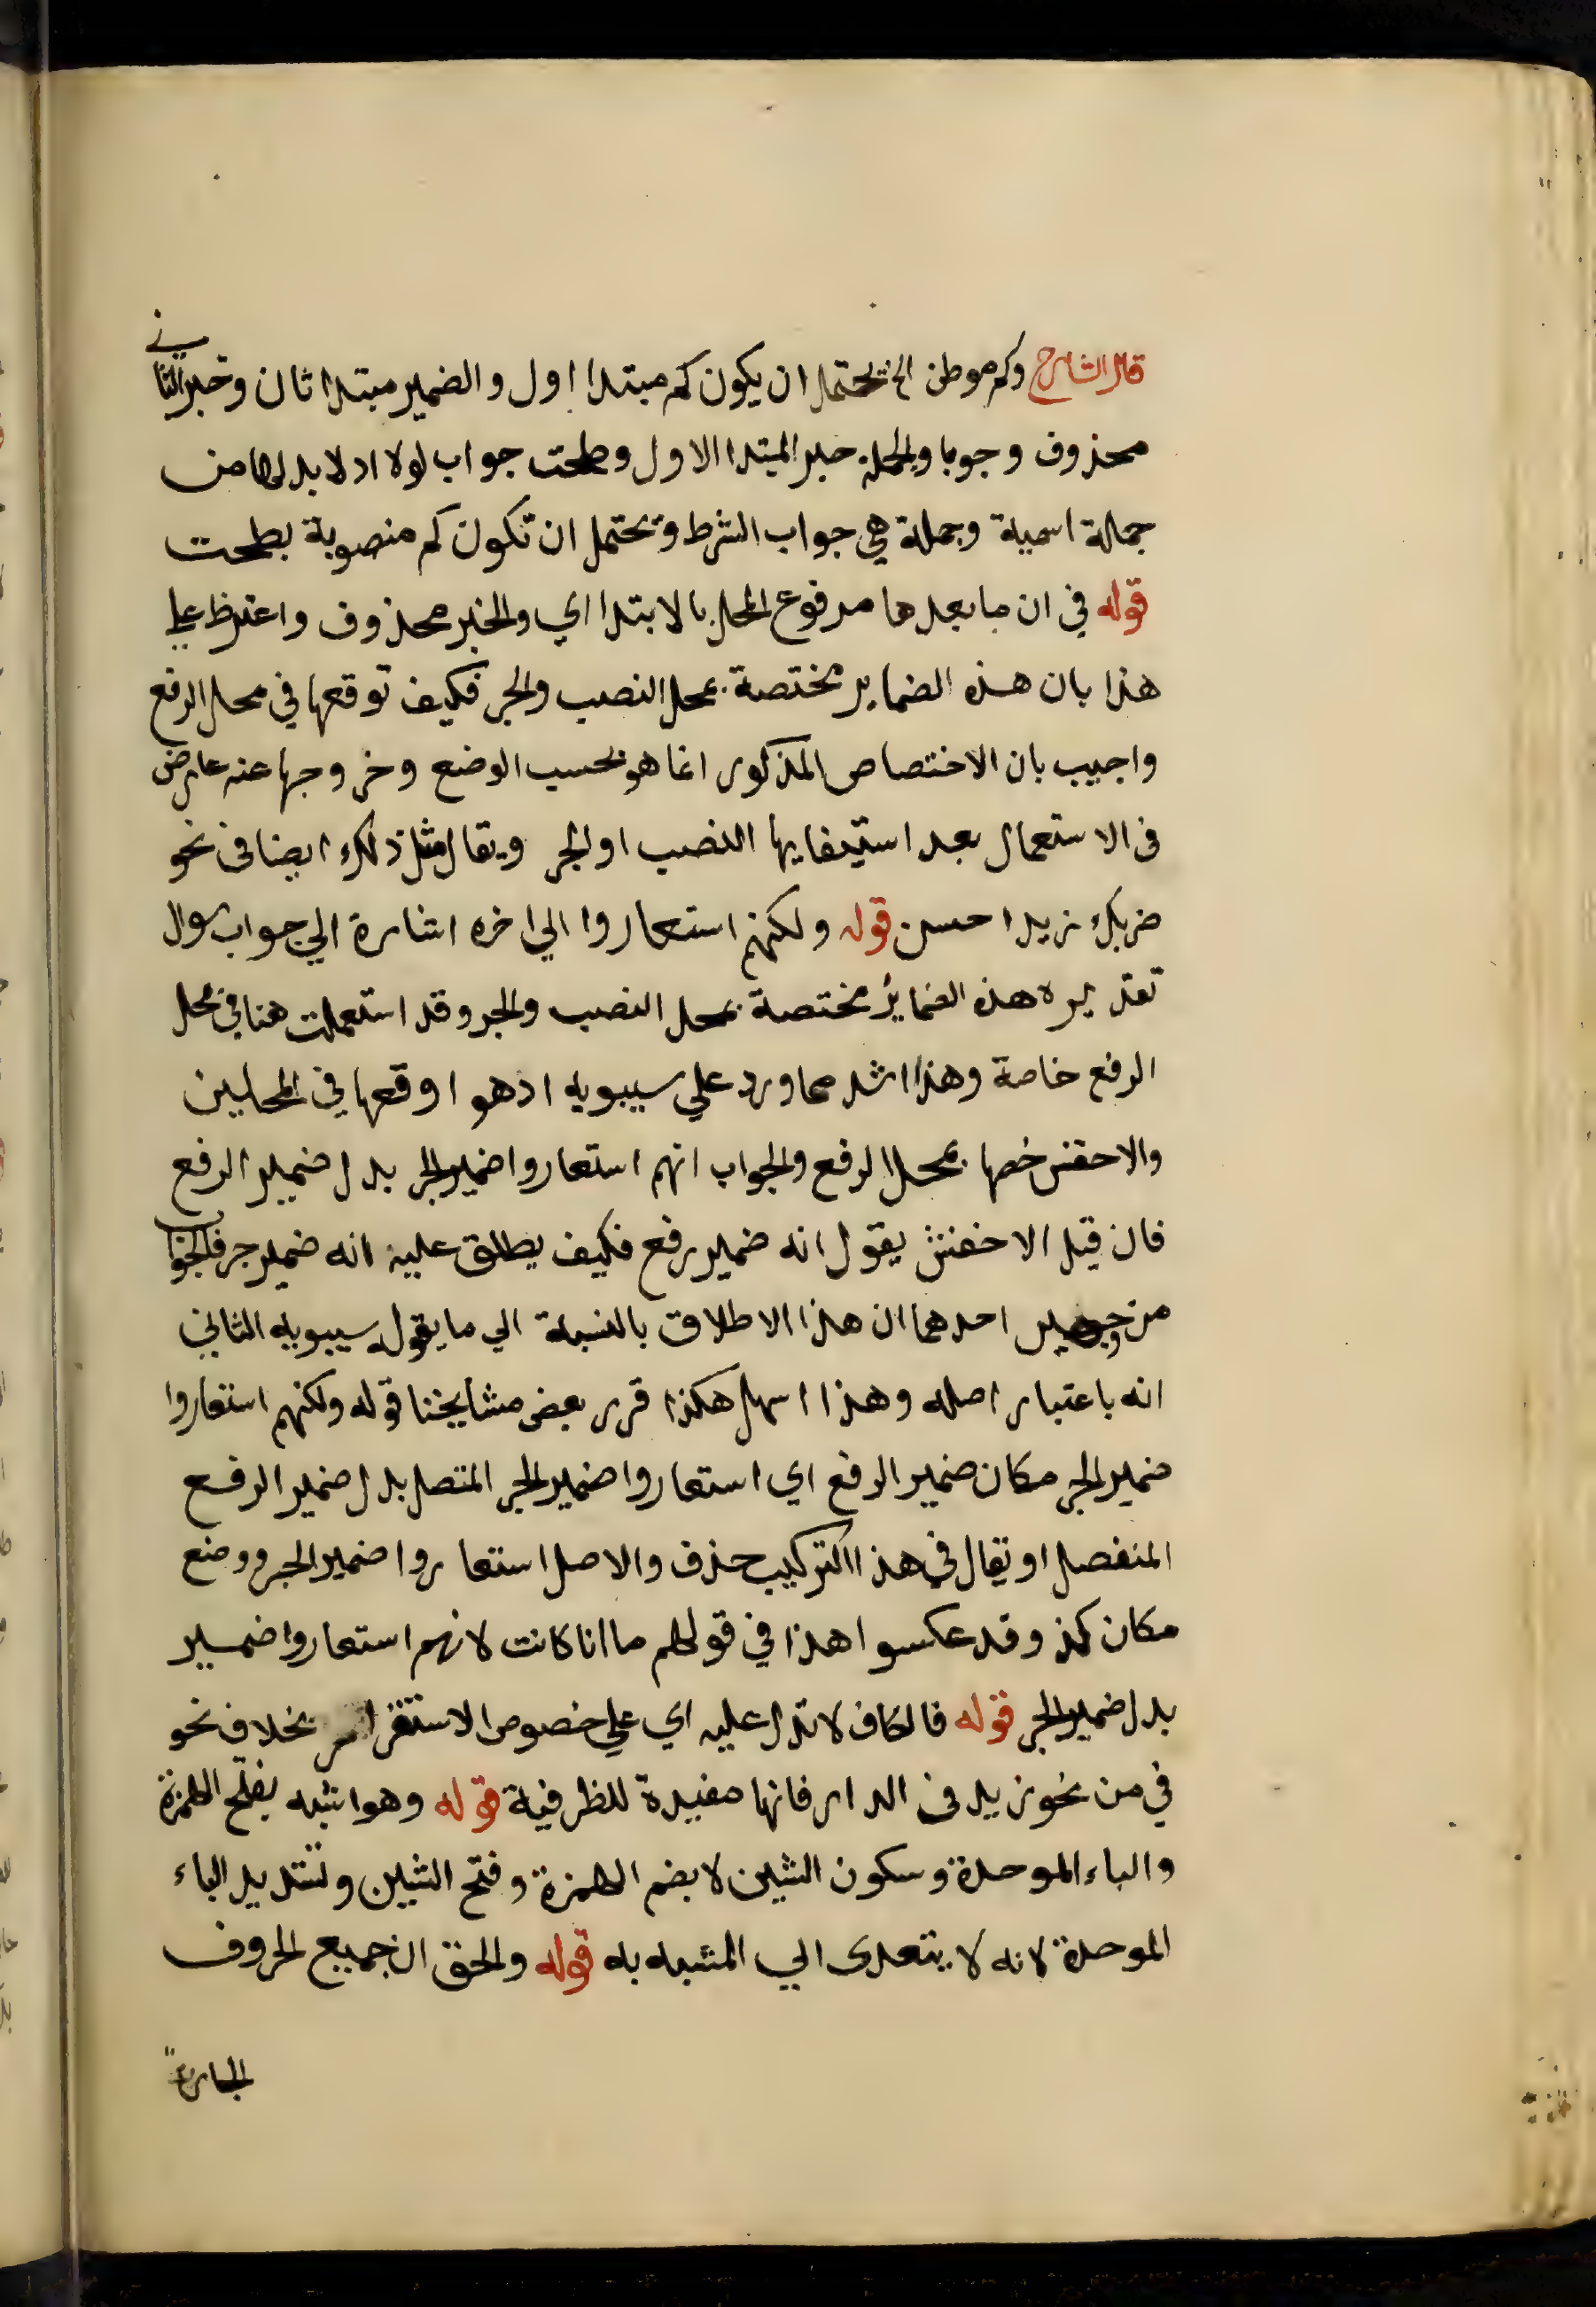 قال الشارح وكم موطن الخ يحتمل ان يكون كم مبتدا اول والضمير مبتدا ثان وخبر الثاني
محذوف وجوبا والجملة خبر المبتدا الاول وطحت جواب لولا اذ لا بد لها من
جملة اسمية وجملة هي جواب الشرط ويحتمل ان تكون كم منصوبة بطحت
قوله في ان ما بعدها مرفوع المحل بالابتدا اي والخبر محذوف واعترظ علي
هذا بان هذه الضماير مختصة بمحل النصب والجر فكيف توقعها في محل الرفع
واجيب بان الاختصاص المذكور انما هو بحسب الوضع وخروجها عنه عارض
فى الاستعمال بعد استيفايها النصب او الجر ويقال مثل ذلك ايضا فى نحو
ضربك زيدا حسن قوله ولكنهم استعاروا الي اخره اشارة الي جواب سوال
تقديره هذه الضمائر مختصة بمحل النصب والجر وقد استعملت هنا في محل
الرفع خاصة وهذا اشد مما ورد علي سيبويه اذ هو اوقعها في المحلين
والاخفش خصها بمحل الرفع والجواب انهم استعاروا ضمير الجر بدل ضمير الرفع
فان قيل الاخفش يقول انه ضمير رفع فكيف يطلق عليه انه ضمير جر فالجواب
من وجهين احدهما ان هذا الاطلاق بالنسبة الي ما يقول سيبويه الثاني
انه باعتبار اصله وهذا اسهل هكذا قرر بعض مشايخنا قوله ولكنهم استعاروا
ضمير الجر مكان ضمير الرفع اي استعاروا ضمير الجر المتصل بدل ضمير الرفع
المنفصل او يقال في هذا التركيب حذف والاصل استعاروا ضمير الجر ووضع
مكان كذ وقد عكسوا هذا في قولهم ما انا كانت لانهم استعاروا ضمير
بدل ضمير الجر قوله فالكاف لا تدل عليه اي علي خصوص الاستقرار بخلاف نحو
في من نحو زيد فى الدار فانها مفيدة للظرفية قوله وهو اشبه بفتح الهمزة
والباء الموحدة وسكون الشين لا بضم الهمزة وفتح الشين وتشديد الباء
الموحدة لانه لا يتعدى الي المشبه به قوله والحق ان جميع الحروف
الجارة